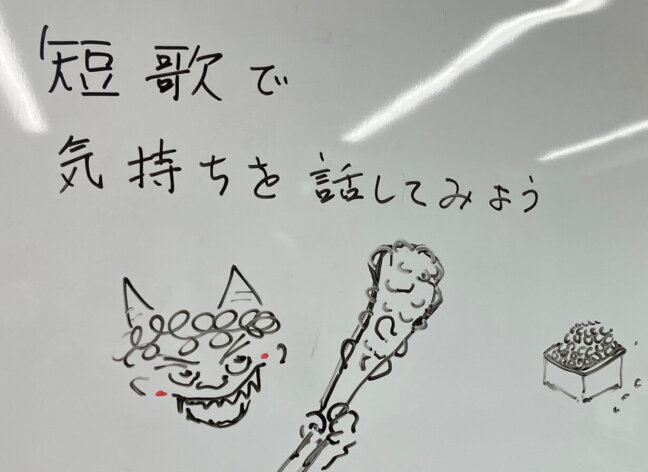 短歌で
気持ちを話してみよう